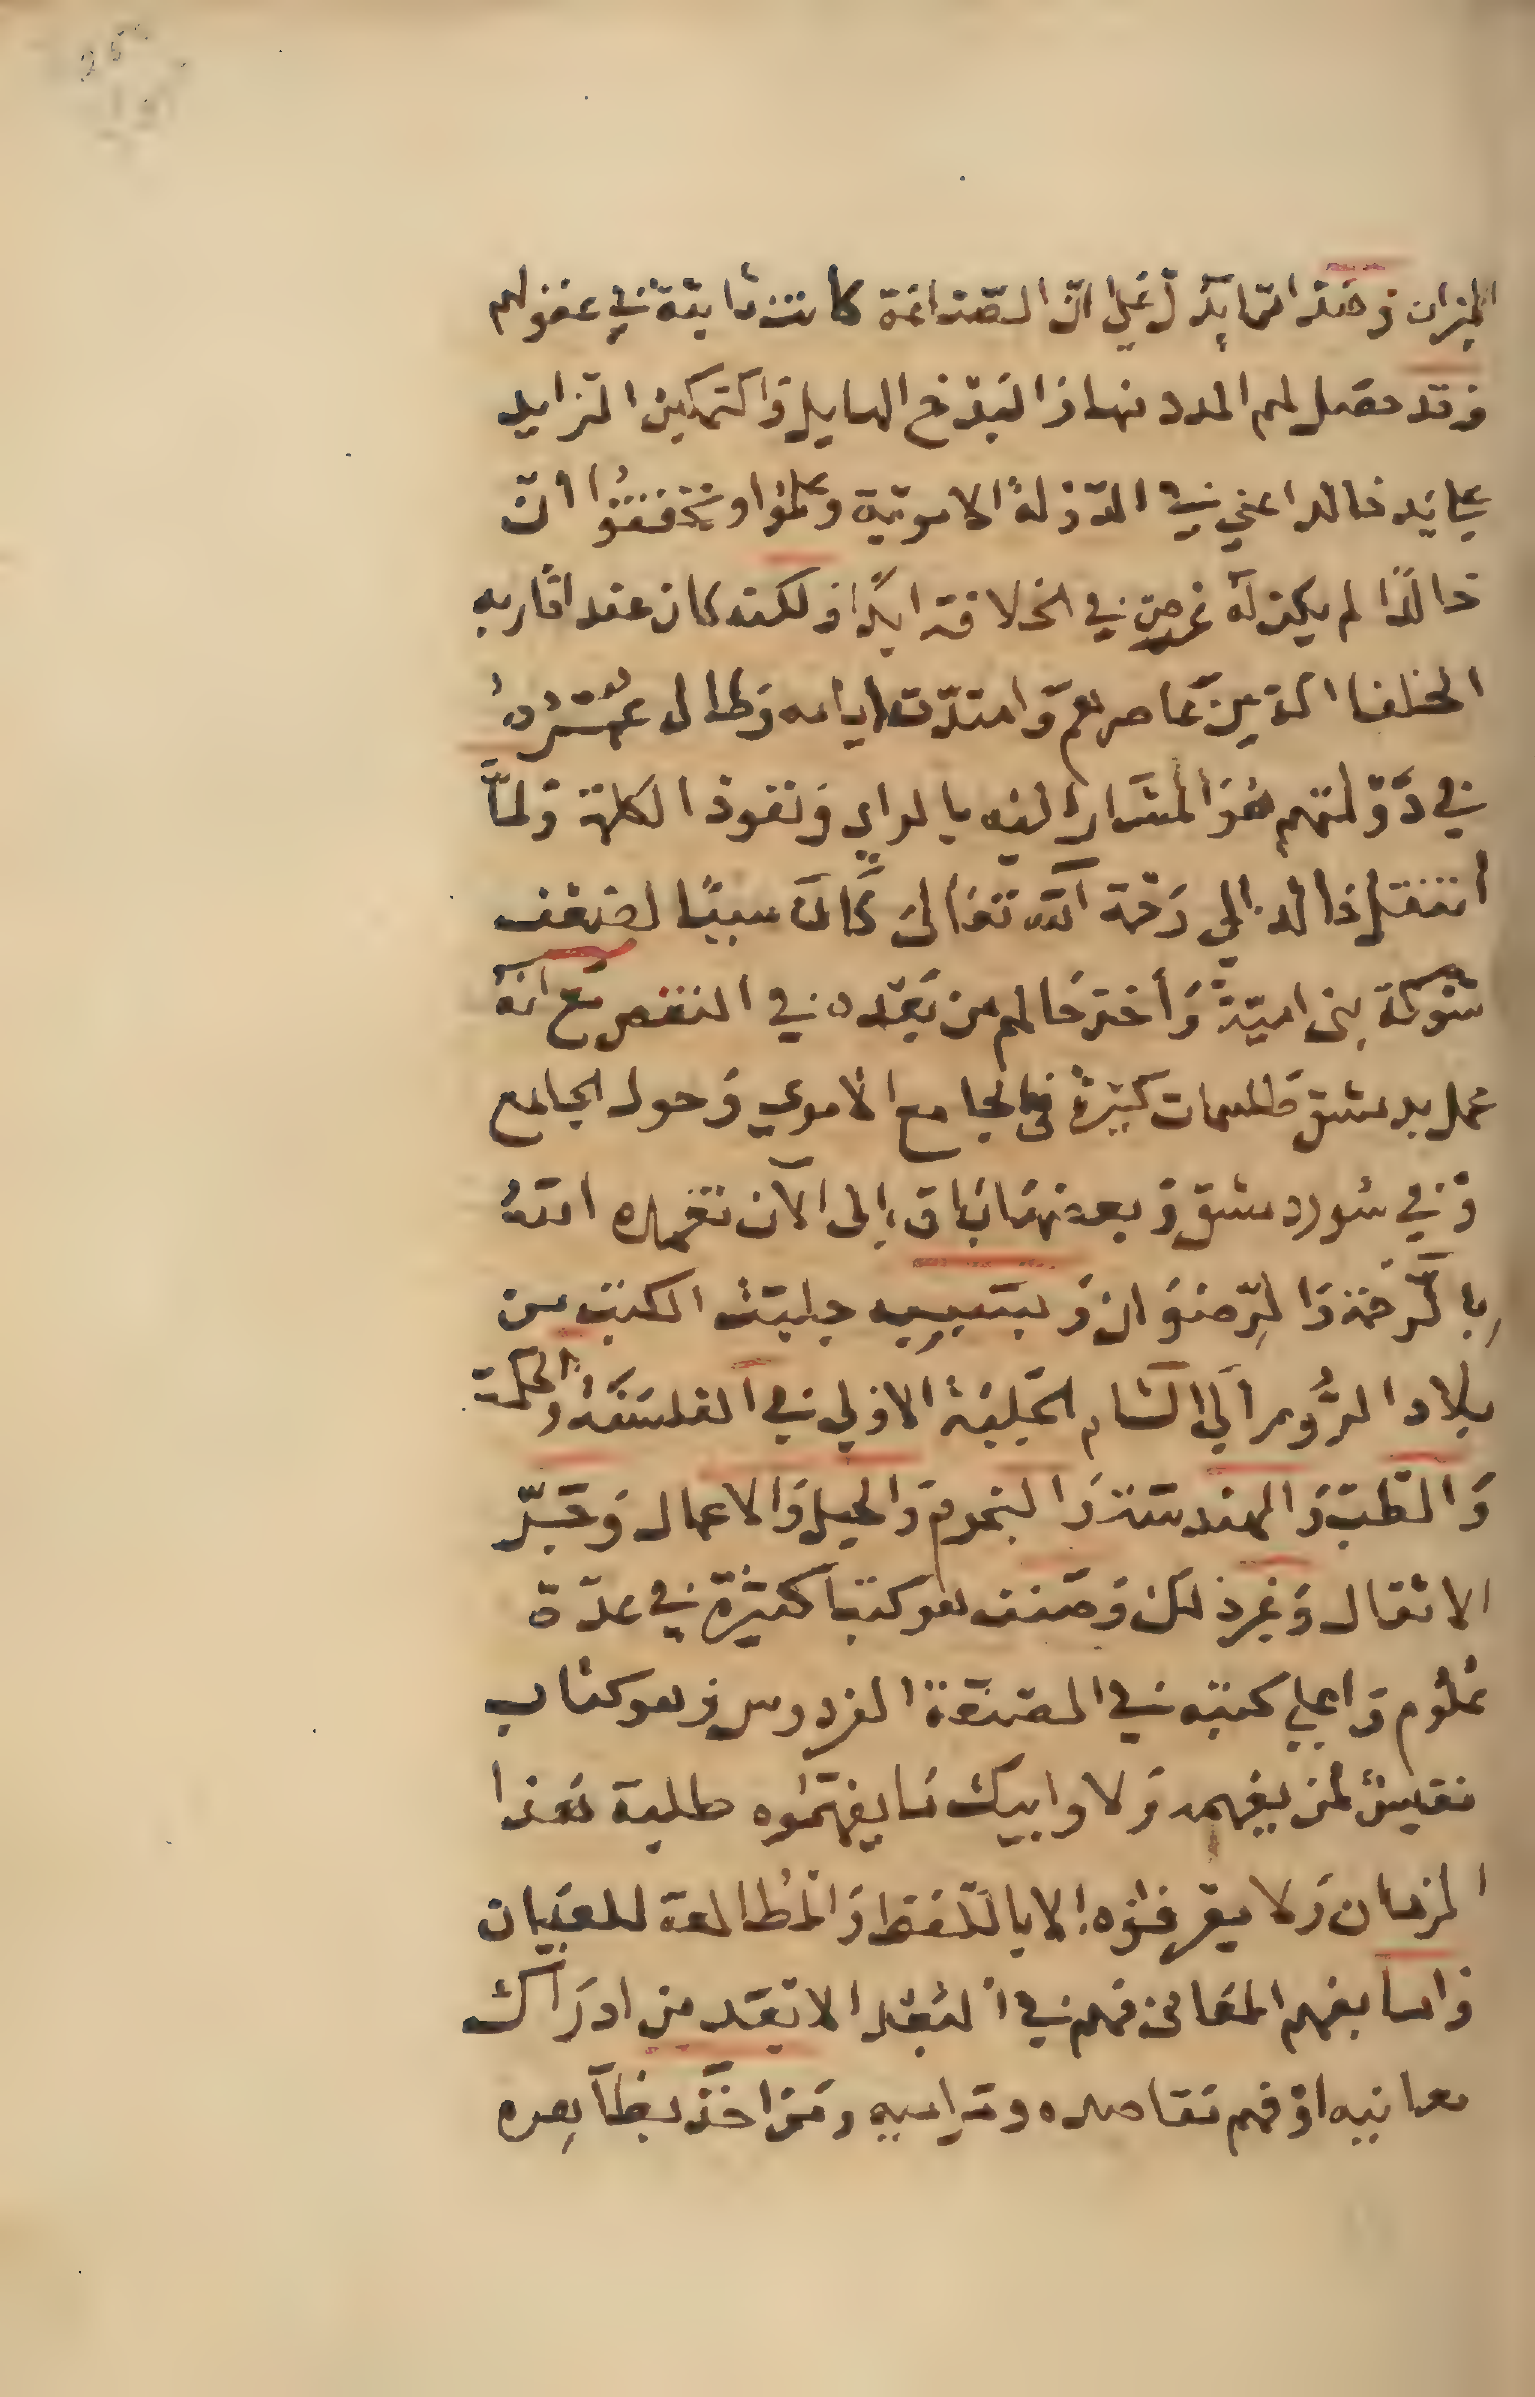 الميزان وهذا مما يدل على ان الصناعة كانت ثابتة في عقولهم
وقد حصل لهم المدد منها والبدخ الهايل والتمكين الزايد
على يد خالد اعني في الدولة الاموية وعلموا وتحققوا ان
خالدًا لم يكن له غرض في الخلافة ابدًا ولكنه كان عند اقاربه
الخلفا الذين عاصرهم وامتدّت ايامه وطال عمره
في دولتهم هو المشار اليه بالراي ونفوذ الكلمة ولمّا
انتقل خالد الي رحمة الله تعالى كان سببًا لضعف
شوكة بني اميّة وأخذ حالهم من بعده في النقص مع انه
عمل بدمشق طلسمات كثيرة في الجامع الاموي وحول الجامع
وفي سور دمشق وبعضها باق إلى الآن تغمده الله
بالرحمة والرضوان وبسببه جلبت الكتب من
بلاد الروم إلى الشام الجليلة الاولي في الفلسفة والحكمة
والطب والهندسة والنجوم والحيل والاعمال وجرّ
الاثقال وغير ذلك وصنف هو كتبا كثيرة في عدّة
علوم واعلي كتبه في الصنعة الفردوس وهو كتاب
نفيس لمن يفهمه ولا وابيك ما يفهموه طلبة هذا
الزمان ولا يعرفوه إلا باللفظ والمطالعة للعيان
واما بفهم المعاني فهم في البعد الابعد من ادراك
معانيه او فهم مقاصده ومراميه ومن اخذ بظاهره